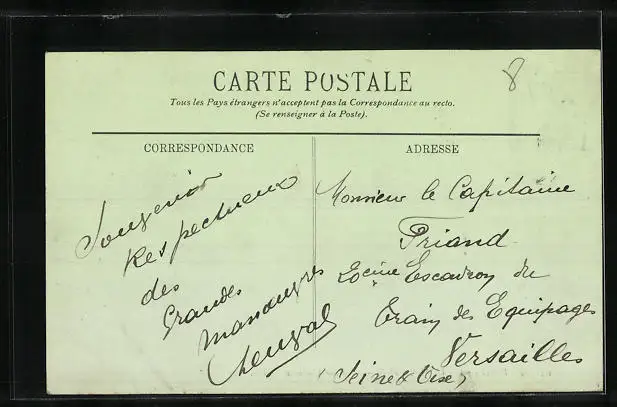 8
CARTE POSTALE
Tous les Pays étrangers n'acceptent pas la Correspondance au recto.
(Se renseigner à la Poste).
CORRESPONDANCE
Souvenir
Respectueux
des
Grandes
Manœuvres
ADRESSE
Monsieur le Capitaine
Friand
20eme Escadron du
Train des Equipages
Versailles
(Seine & Oise)